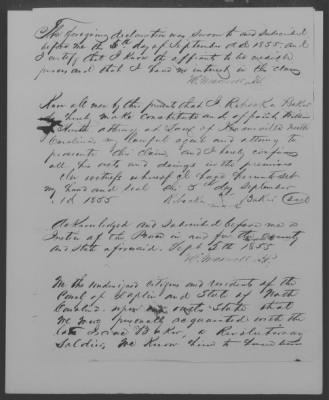 The foregoing declaration was sworn to and subscribed
before me the 5th day of September A.D. 1855. and
I certify that I know the affiants to be credible
persons and that I have no interest in the claim
Know all men by these presents that I Rebecka Baker
do hereby make Constitute and appoint William
attorney at Law of Kenansville North
Carolina my lawful agent and attorney to
prosecute this claim and I hereby confirm
all his acts and doings in the premises
In witness whereof I have hereunto set
my hand and seal this 5th day September
A.d. 1855 Rebecka Baker Seal
Acknowledged and Subscribed before me a
Justice of the Peace in and for the County
and State aforesaid. Sept 5th 1855
We the undersigned citizens and residents of the
County of Duplin and State of North
Carolina upon oaths State that
we were personally acquainted with the
late Baker, a Revolutionary
Soldier, We Know him to have been